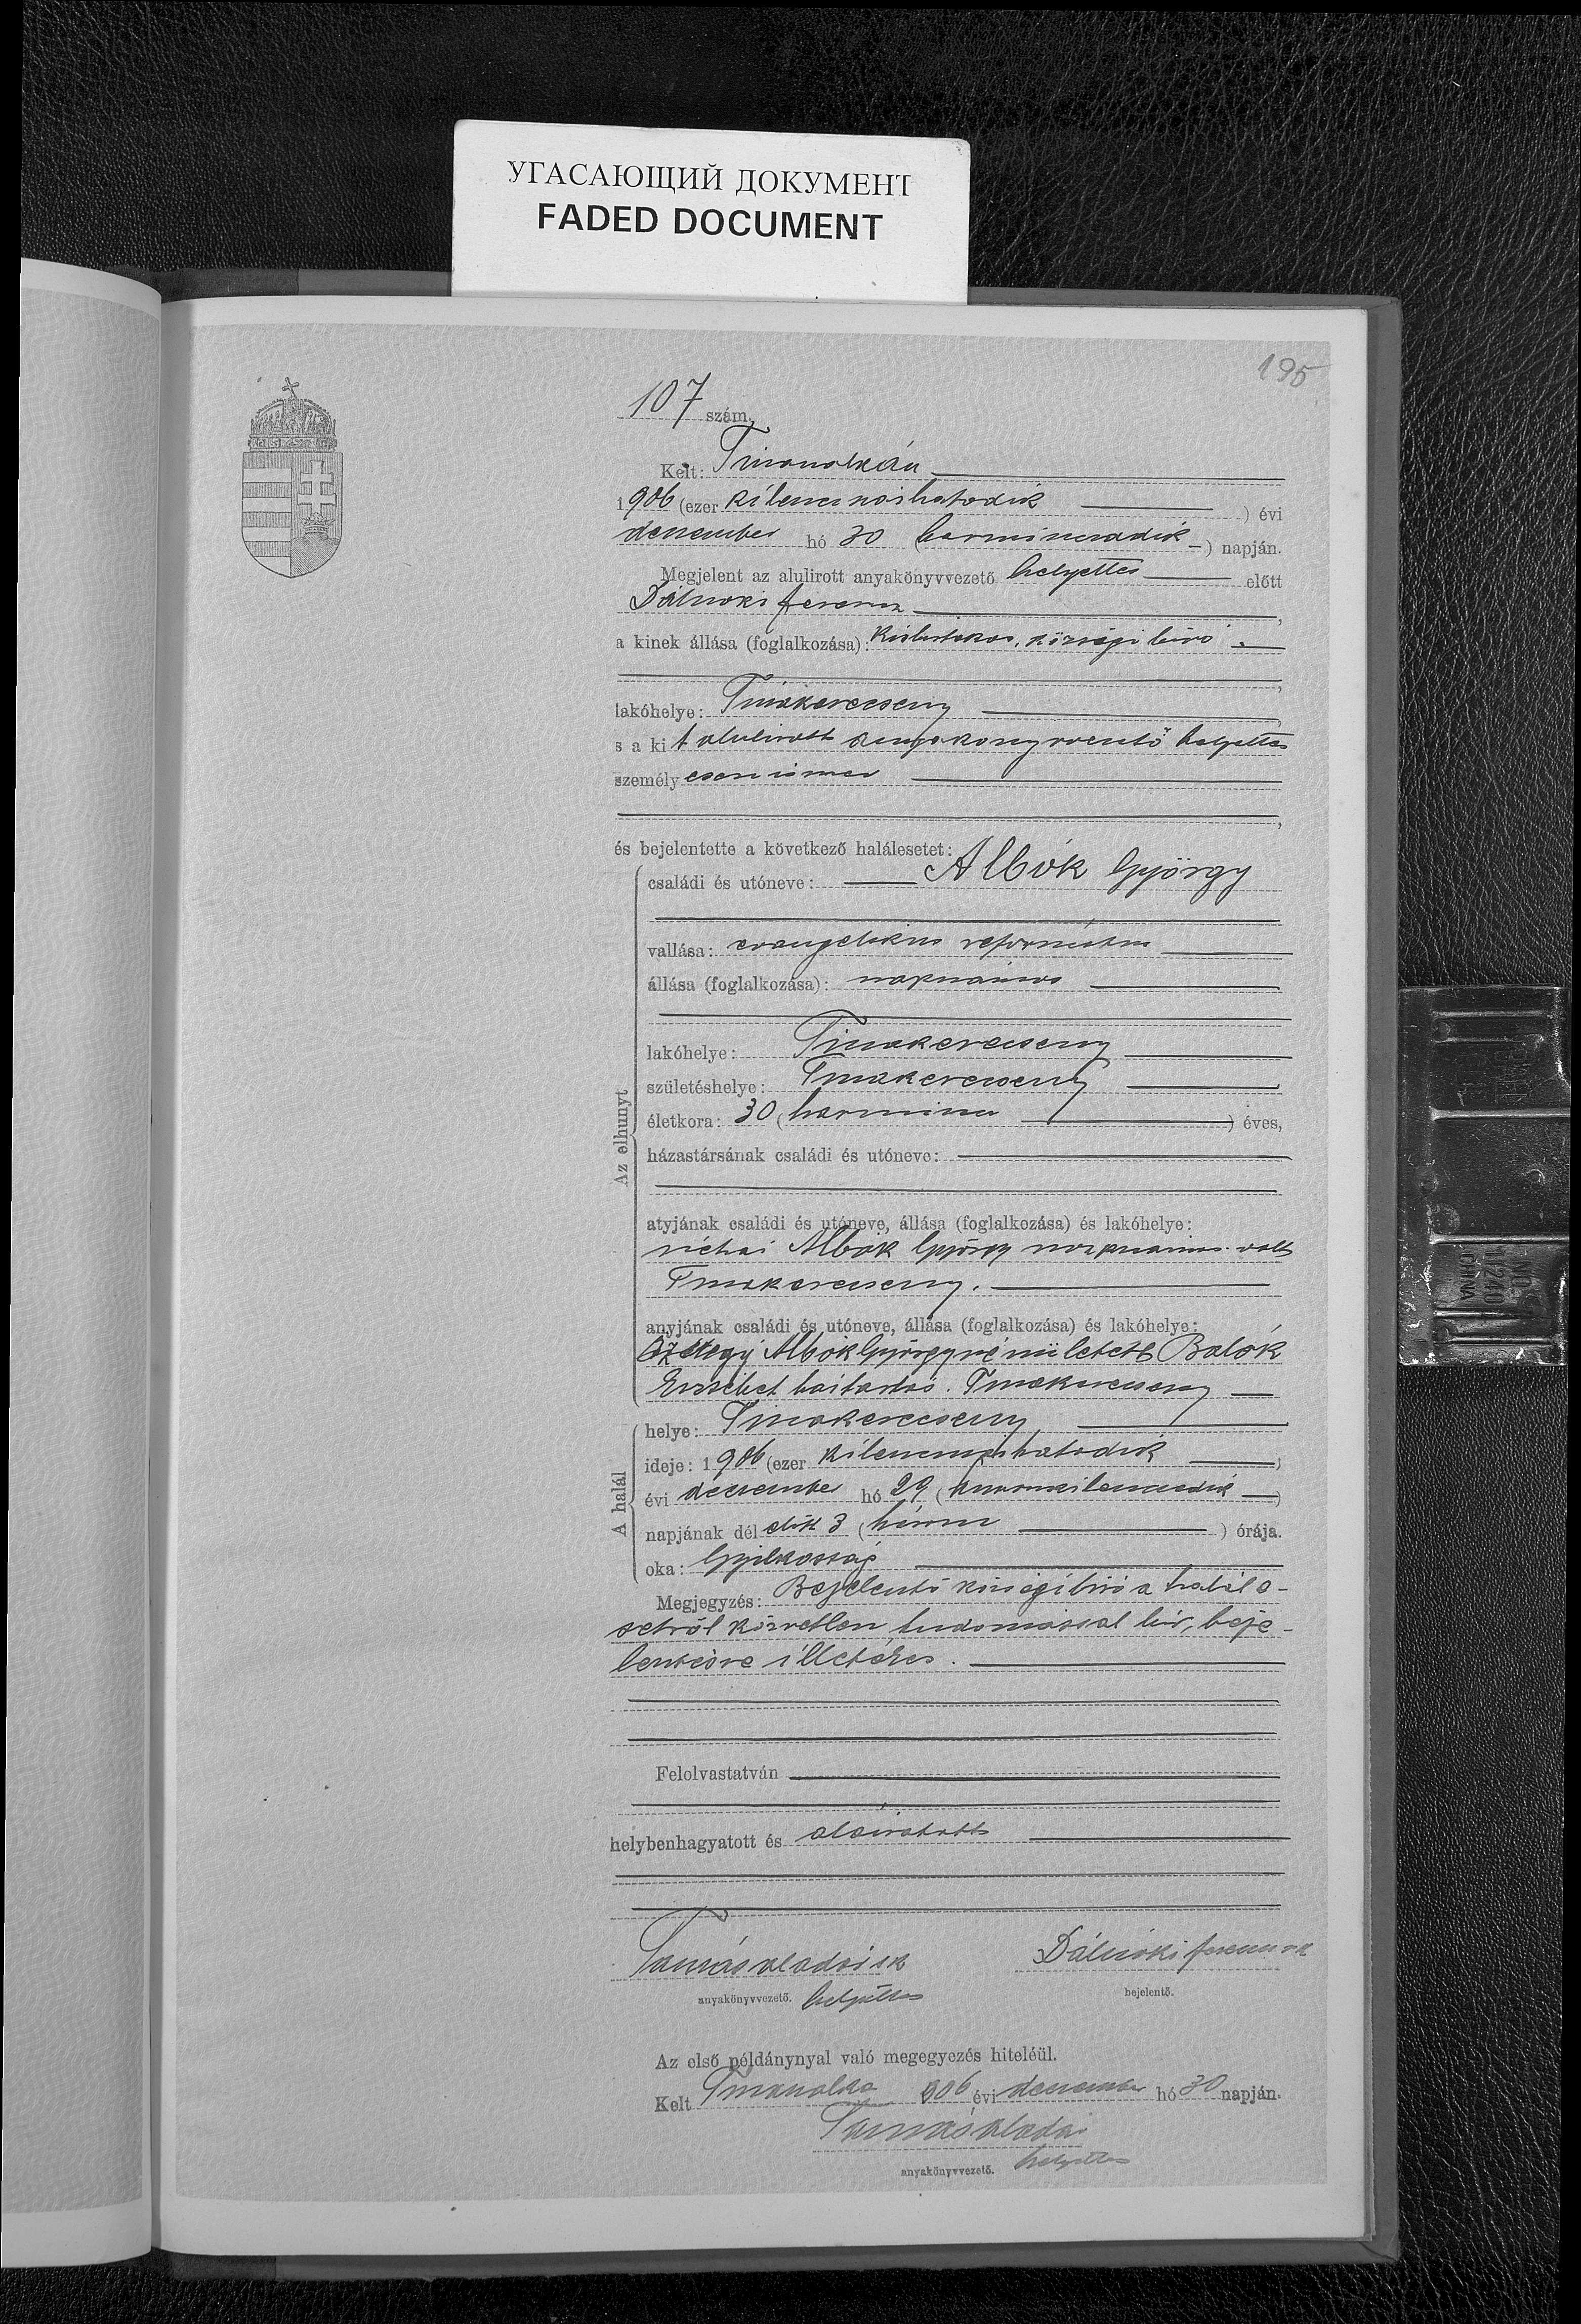 УГАСАЮЩИЙ ДОКУМЕНТ
FADED DOCUMENT
195
107 szám.
Kelt: Tiszasalkán
1906 (ezer kilenczszázhatodik) évi
deczember hó 30 (harminczadik) napján.
Megjelent az alulirott anyakönyvvezető helyettes előtt
Dálnoki Ferencz,
a kinek állása (foglalkozása): kisbirtokos, községi biró
lakóhelye: Tiszakerecseny
s a kit alulirott anyakönyvvezető helyettes
személyesen ismer
és bejelentette a következő halálesetet:
Az elhunyt
családi és utóneve: Albók György
vallása: evangelikus református
állása (foglalkozása): napszámos
lakóhelye: Tiszakerecseny
születéshelye: Tiszakerecseny
életkora: 30 (harmincz) éves,
házastársának családi és utóneve:
atyjának családi és utóneve, állása (foglalkozása) és lakóhelye:
néhai Albók György napszámos volt
Tiszakerecseny.
anyjának családi és utóneve, állása (foglalkozása) és lakóhelye:
özvegy Albók Györgyné született Balók
Erzsébet háztartás. Tiszakerecseny
A halál
helye: Tiszakerecseny
ideje: 1906 (ezer kilenczszázhatodik)
évi deczember hó 29 (huszonkilenczedik)
napjának délelőtt 3 (három) órája.
oka: Gyilkosság
Megjegyzés: Bejelentő községi biró a halále-
setről közvetlen tudomással bir, beje-
lentésre illetékes.
Felolvastatván
helybenhagyatott és aláiratott
Tamás Aladár sk
anyakönyvvezető. helyettes
Dálnoki Ferencz sk
bejelentő.
Az első példánynyal való megegyezés hiteléül.
Kelt 906 évi deczember hó 30 napján.
Tamás Aladár
anyakönyvvezető. helyettes